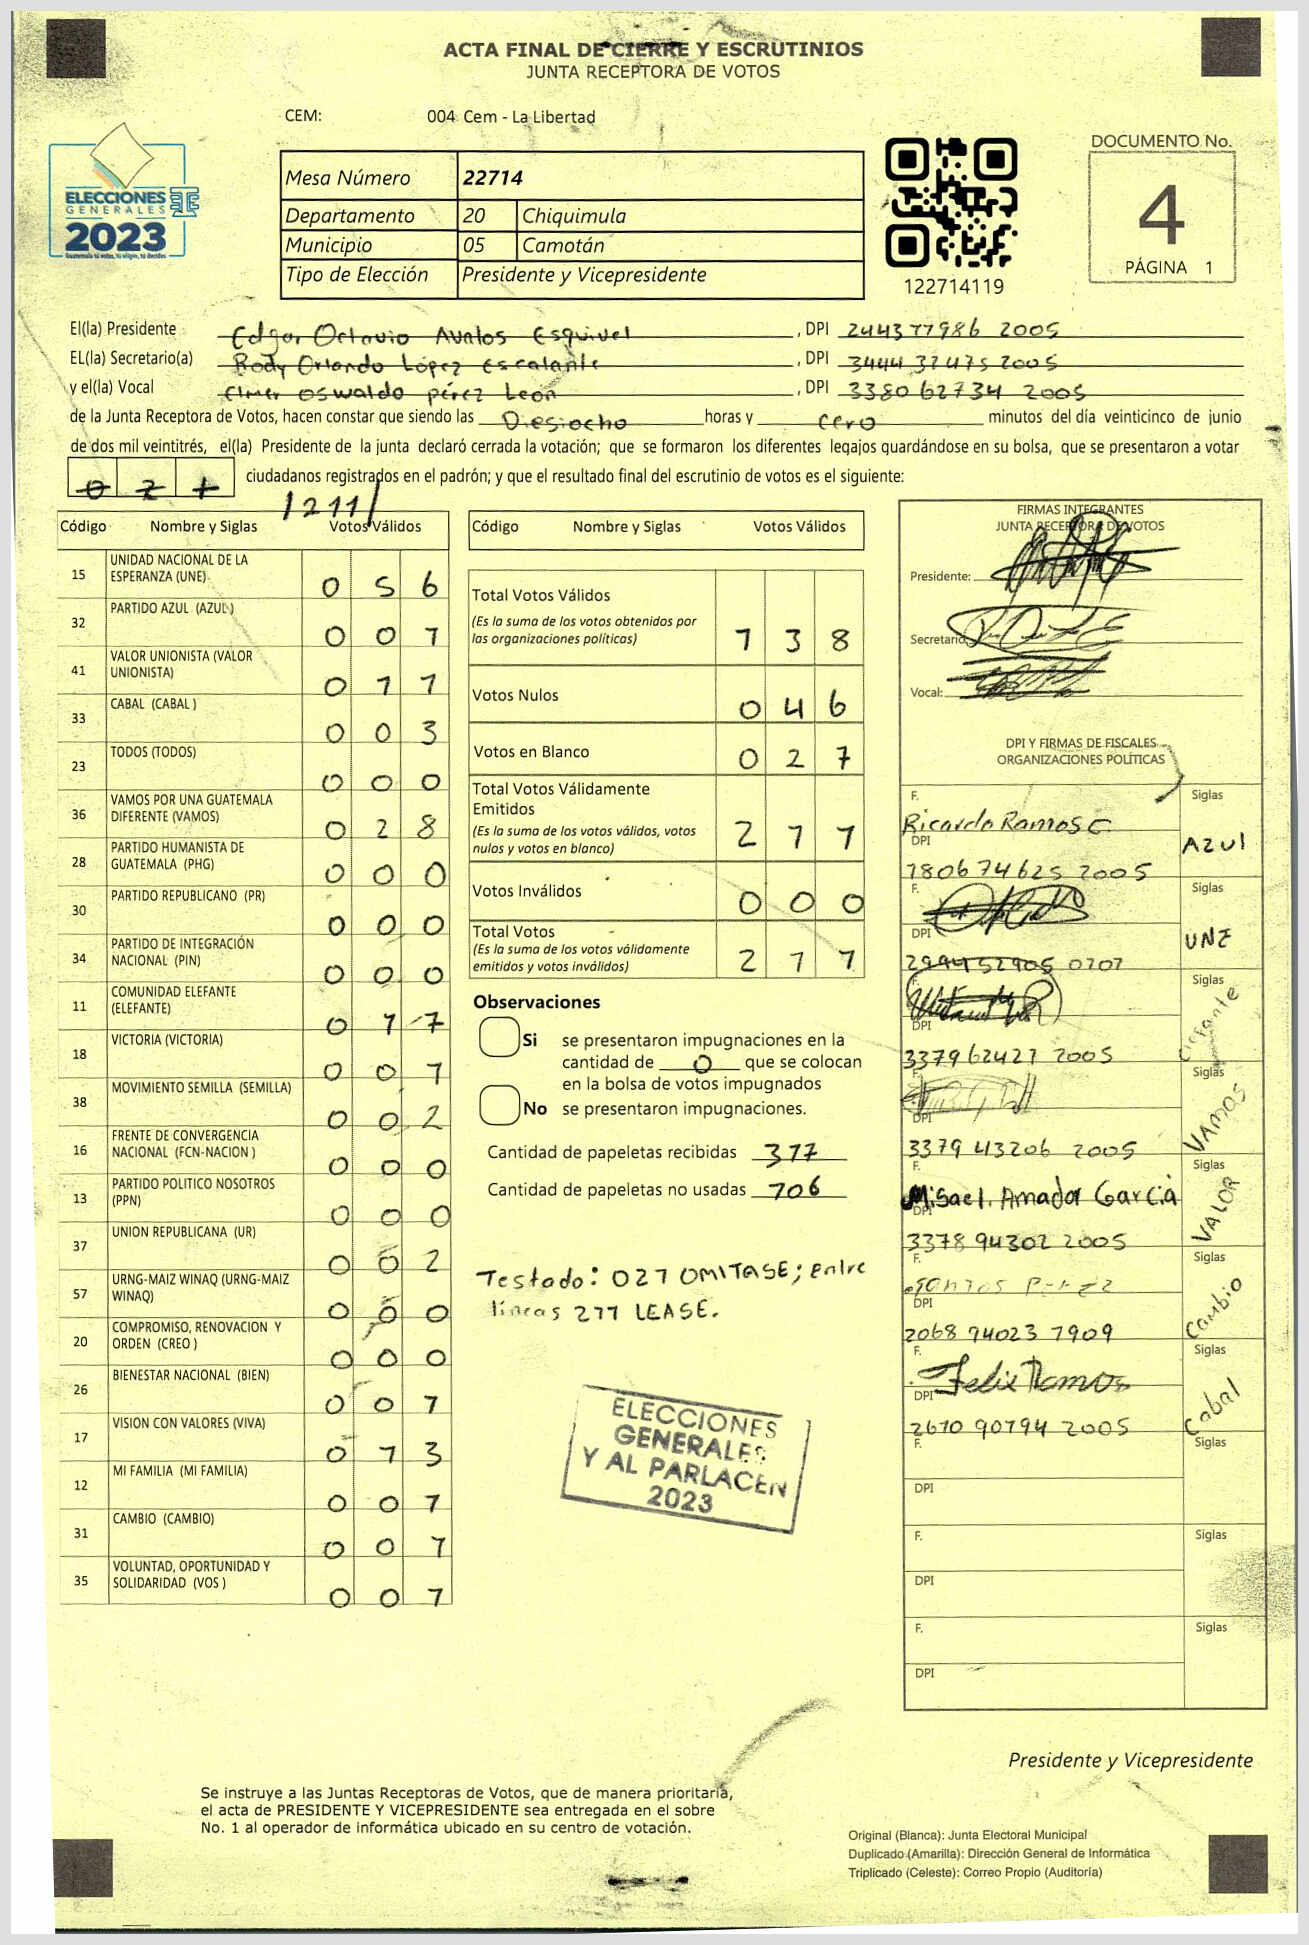 ACTA FINAL DE CIERRE Y ESCRUTINIOS
JUNTA RECEPTORA DE VOTOS
CEM: 004 Cem - La Libertad
ELECCIONES
GENERALES
2023
Mesa Número 22714
Departamento 20 Chiquimula
Municipio 05 Camotán
Tipo de Elección Presidente y Vicepresidente
122714119
DOCUMENTO No.
4
PÁGINA 1
El(la) Presidente Edgar Octavio Avalos Esquivel , DPI 244377986 2005
EL(la) Secretario(a) Rody Orlando López Escalante , DPI 3444 37475 2005
y el(la) Vocal Elmer Oswaldo pérez León , DPI 3380 62734 2005
de la Junta Receptora de Votos, hacen constar que siendo las Diesiocho horas y cero minutos del día veinticinco de junio
de dos mil veintitrés, el(la) Presidente de la junta declaró cerrada la votación; que se formaron los diferentes legajos guardándose en su bolsa, que se presentaron a votar
ciudadanos registrados en el padrón; y que el resultado final del escrutinio de votos es el siguiente:
Código Nombre y Siglas Votos Válidos
15 UNIDAD NACIONAL DE LA
ESPERANZA (UNE) 0 5 6
32 PARTIDO AZUL (AZUL) 0 0 1
41 VALOR UNIONISTA (VALOR
UNIONISTA) 0 1 1
33 CABAL (CABAL ) 0 0 3
23 TODOS (TODOS) 0 0 0
36 VAMOS POR UNA GUATEMALA
DIFERENTE (VAMOS) 0 2 8
28 PARTIDO HUMANISTA DE
GUATEMALA (PHG) 0 0 0
30 PARTIDO REPUBLICANO (PR) 0 0 0
34 PARTIDO DE INTEGRACIÓN
NACIONAL (PIN) 0 0 0
11 COMUNIDAD ELEFANTE
(ELEFANTE) 0 1 7
18 VICTORIA (VICTORIA) 0 0 1
38 MOVIMIENTO SEMILLA (SEMILLA) 0 0 2
16 FRENTE DE CONVERGENCIA
NACIONAL (FCN-NACION ) 0 0 0
13 PARTIDO POLITICO NOSOTROS
(PPN) 0 0 0
37 UNION REPUBLICANA (UR) 0 0 2
57 URNG-MAIZ WINAQ (URNG-MAIZ
WINAQ) 0 0 0
20 COMPROMISO, RENOVACION Y
ORDEN (CREO ) 0 0 0
26 BIENESTAR NACIONAL (BIEN) 0 0 1
17 VISION CON VALORES (VIVA) 0 1 3
12 MI FAMILIA (MI FAMILIA) 0 0 1
31 CAMBIO (CAMBIO) 0 0 1
35 VOLUNTAD, OPORTUNIDAD Y
SOLIDARIDAD (VOS ) 0 0 1
Código Nombre y Siglas Votos Válidos
Total Votos Válidos
(Es la suma de los votos obtenidos por
las organizaciones políticas) 1 3 8
Votos Nulos 0 4 6
Votos en Blanco 0 2 7
Total Votos Válidamente
Emitidos
(Es la suma de los votos válidos, votos
nulos y votos en blanco) 2 1 1
Votos Inválidos 0 0 0
Total Votos
(Es la suma de los votos válidamente
emitidos y votos inválidos) 2 1 1
Observaciones
Si se presentaron impugnaciones en la
cantidad de 0 que se colocan
en la bolsa de votos impugnados
No se presentaron impugnaciones.
Cantidad de papeletas recibidas 317
Cantidad de papeletas no usadas 106
Testado: 021 OMITASE; entre
líneas 211 LEASE.
ELECCIONES
GENERALES
Y AL PARLACEN
2023
FIRMAS INTEGRANTES
JUNTA RECEPTORA DE VOTOS
Presidente:
Secretario
Vocal:
DPI Y FIRMAS DE FISCALES
ORGANIZACIONES POLÍTICAS
F. Siglas
Ricardo Ramos C
DPI AZUl
1806 74625 2005
F. Siglas
DPI UNE
2994 52905 0707
Siglas
DPI Elefante
3379 62427 2005
F. Siglas
DPI VAMOS
3379 43206 2005
F. Siglas
Misael. Amador García
DPI VALOR
3378 94302 2005
F. Siglas
DPI Cambio
2068 94023 1909
F. Siglas
Felix Ramos
DPI Cabal
2610 90794 2005
F. Siglas
DPI
F. Siglas
DPI
F. Siglas
DPI
Presidente y Vicepresidente
Se instruye a las Juntas Receptoras de Votos, que de manera prioritaria,
el acta de PRESIDENTE Y VICEPRESIDENTE sea entregada en el sobre
No. 1 al operador de informática ubicado en su centro de votación.
Original (Blanca): Junta Electoral Municipal
Duplicado (Amarilla): Dirección General de Informática
Triplicado (Celeste): Correo Propio (Auditoría)